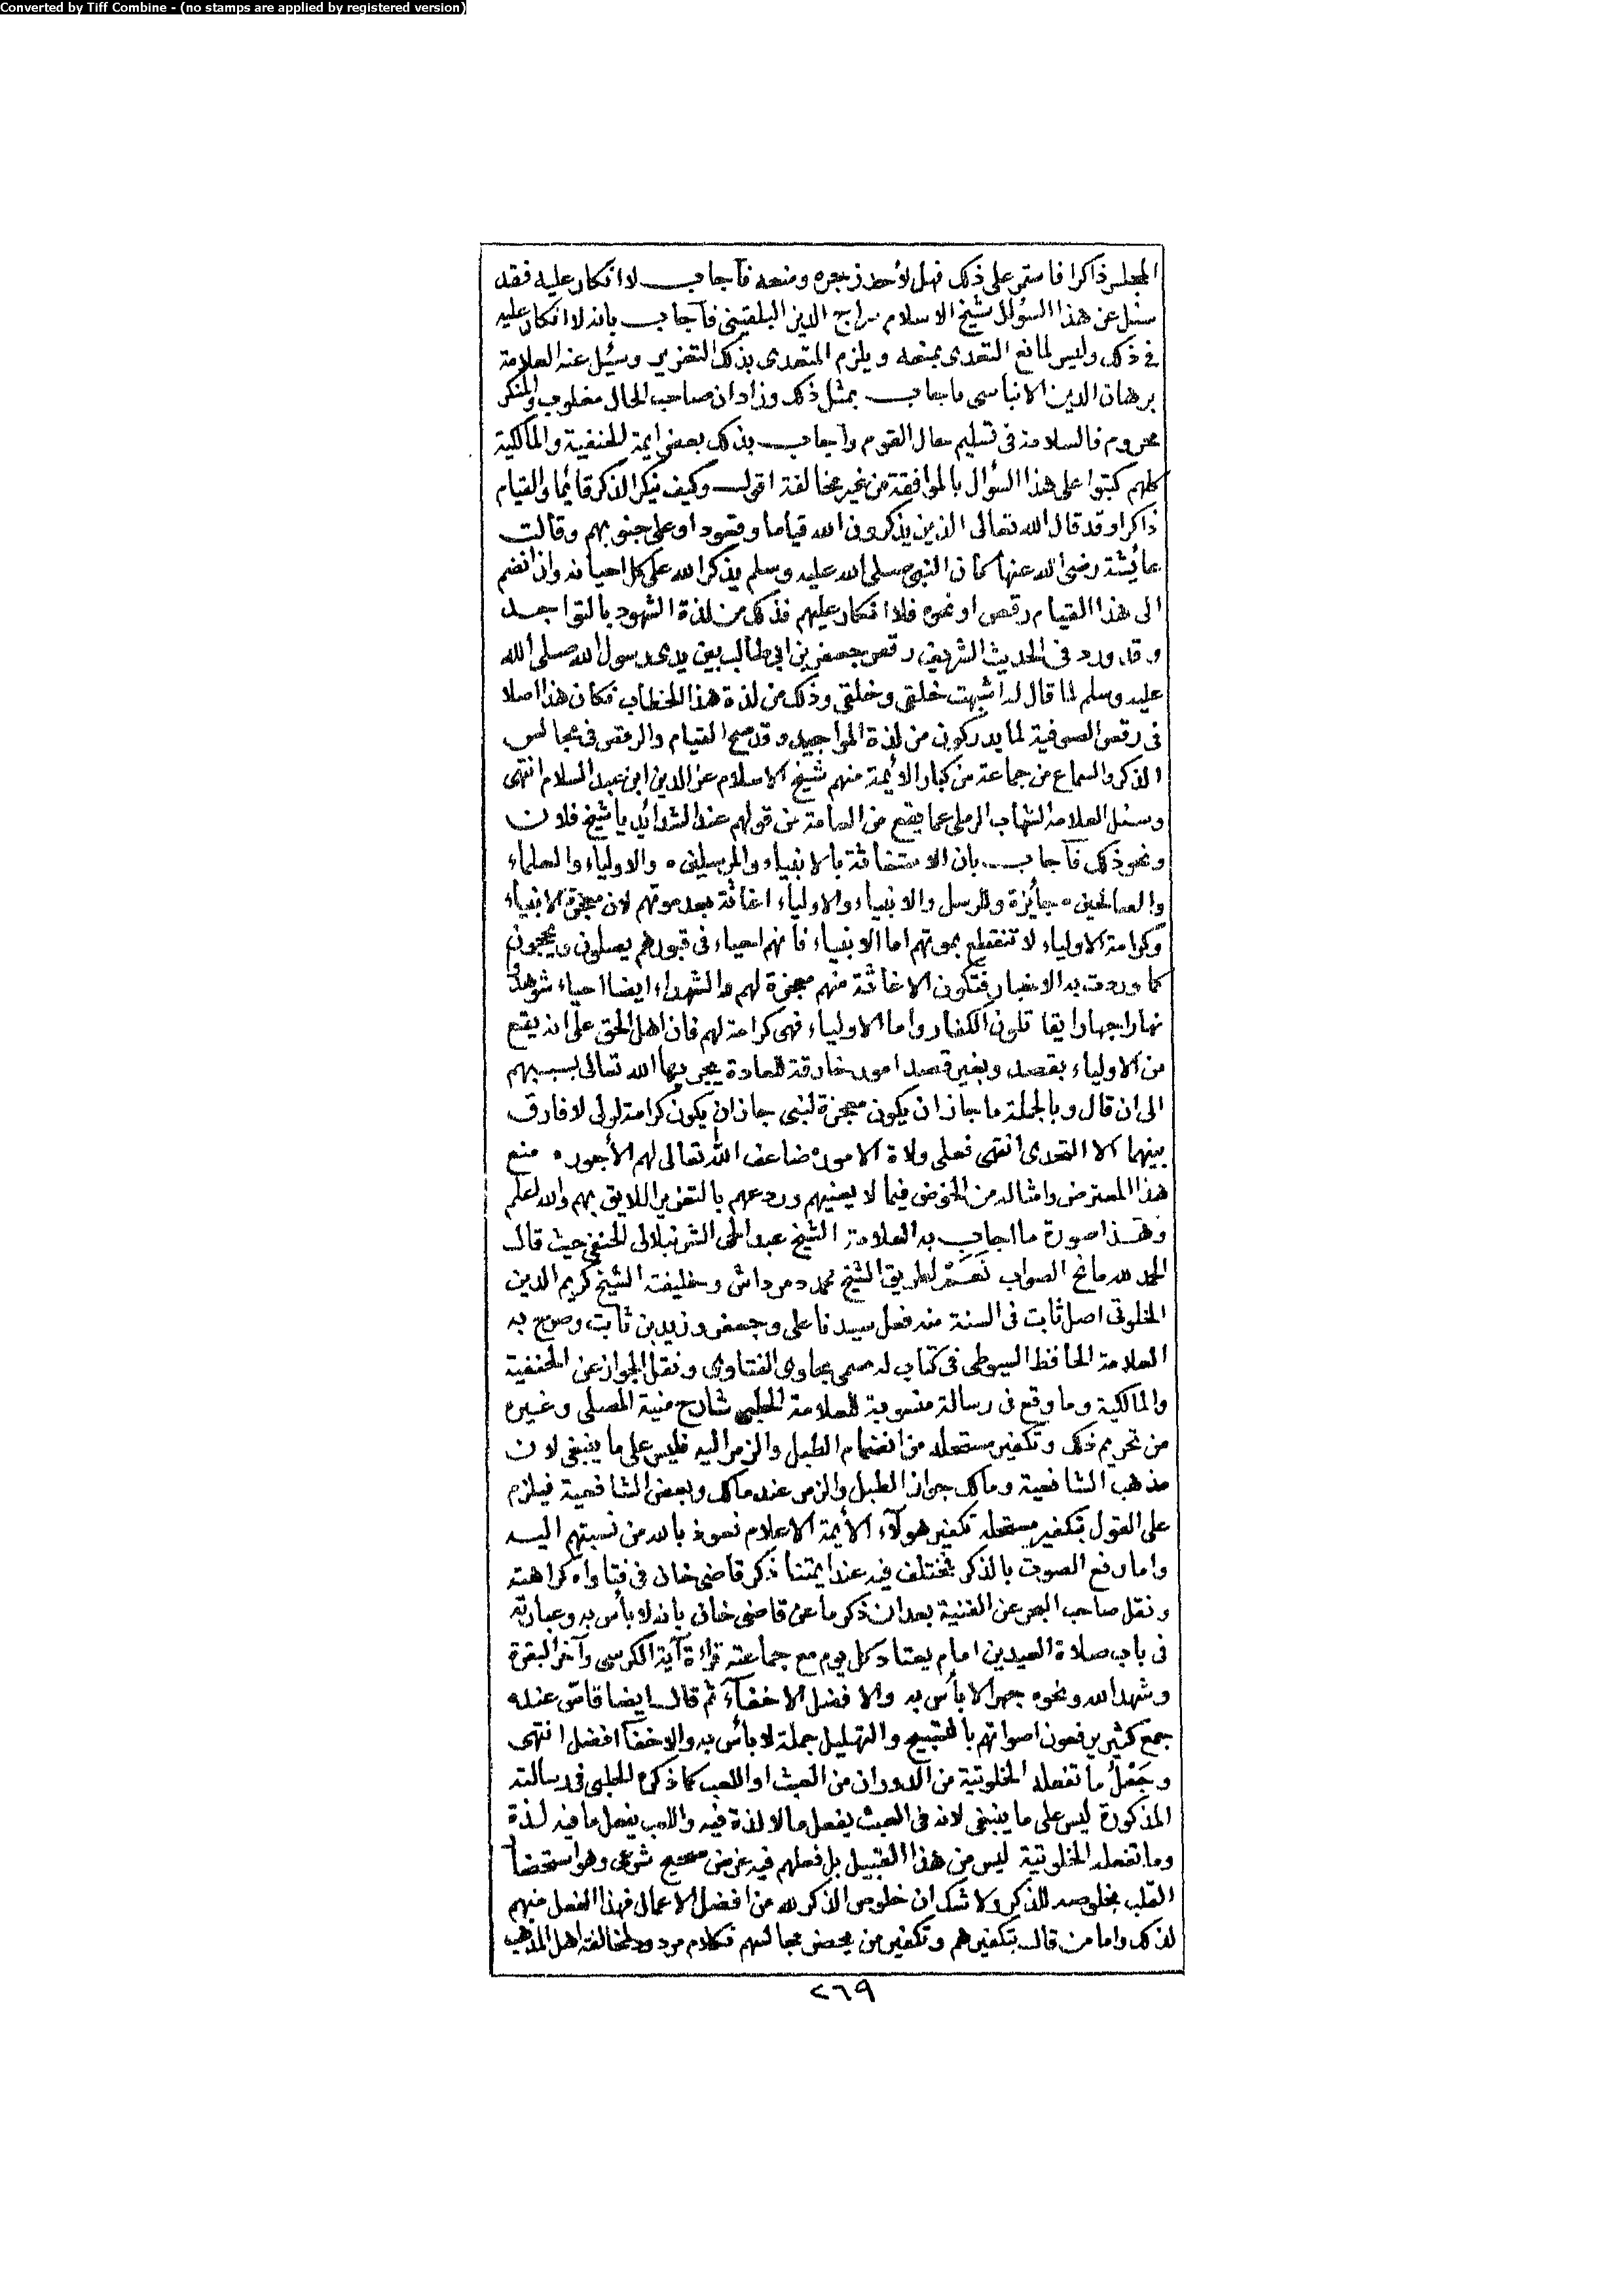 Converted by Tiff Combine - (no stamps are applied by registered version)
المجلس ذاكرا فاستمر على ذلك فهل لأحد زجره ومنعه فآجاب لا انكار عليه فقد
سئل عن هذا السؤال شيخ الاسلام سراج الدين البلقينى فآجاب بانه لا انكار عليه
فى ذلك وليس لمانع التعدى بمنعه ويلزم المتعدى بذلك التعزير وسئيل عنه العلامة
برهان الدين الانباسى فاجاب بمثل ذلك وزاد ان صاحب الحال مغلوب والمنكر
محروم فالسلامة فى تسليم حال القوم وآجاب بذلك بعض ايمة للحنفية والمالكية
كلهم كتبوا على هذا السؤال بالموافقة من غير مخالفة اقول وكيف ينكر الذكر قائما والقيام
ذاكرا وقد قال الله تعالى الذين يذكرون الله قياما وقعودا وعلى جنوبهم وقالت
عائيشة رضى الله عنها كان النبى صلى الله عليه وسلم يذكر الله على كل احيانه وان انضم
الى هذا القيام رقص او نحوه فلا انكار عليهم فذلك من لذة الشهود بالتواجد
وقد ورد فى الحديث الشريف رقص جعفر بن ابى طالب بين يدى رسول الله صلى الله
عليه وسلم لما قال له اشبهت خلقى وخلقى وذلك من لذة هذا الخطاب فكان هذا اصلا
فى رقص الصوفية لما يدركون من لذة المواجيد وقد صح القيام والرقص فى مجالس
الذكر والسماع من جماعة من كبار الأيمة منهم شيخ الاسلام عز الدين ابن عبد السلام انتهى
وسئل العلامة الشهاب الرملى عما يقع من العامة من قولهم عند الشدائد يا شيخ فلان
ونحو ذلك فآجاب بان الاستغاثة بالانبياء والمرسلين والاولياء والعلماء
والصالحين جائزة وللرسل والانبياء والاولياء اغاثة بعد موتهم لان معجزة الانبياء
وكرامة الاولياء لا تنقطع بموتهم اما الانبياء فانهم احياء فى قبورهم يصلون ويحجون
كما وردت به الاخبار فتكون الاغاثة منهم معجزة لهم والشهداء ايضا احياء شوهدوا
نهارا جهارا يقاتلون الكفار واما الاولياء فهى كرامة لهم فان اهل الحق على انه يقع
من الاولياء بقصد وبغير قصد امور خارقة للعادة يجريها الله تعالى بسببهم
الى ان قال وبالجملة ما جاز ان يكون معجزة لنبى جاز ان يكون كرامة لولى لا فارق
بينهما الا التحدى انتهى فعلى ولاة الامور ضاعف الله تعالى لهم الأجور منع
هذا المعترض وامثاله من الخوض فيما لا يعنيهم وردعهم بالتعزير اللايق بهم والله اعلم
وهذا صورة ما اجاب به العلامة الشيخ عبد الحى الشرنبلالى الحنفى حيث قال
الحمد لله مانح الصواب نعم لطريق الشيخ محمد دمرداش وخليفته الشيخ كريم الدين
الخلوتى اصل ثابت فى السنة منه فعل سيدنا على وجعفر وزيد بن ثابت وصرح به
العلامة الحافظ السيوطى فى كتاب له مسمى بحاوى الفتاوى ونقل الجواز عن الحنفية
والمالكية وما وقع فى رسالة منسوبة للعلامة الحلبى شارح منية المصلى وغيره
من تحريم ذلك وتكفير مستحله من انضمام الطبل والزمر اليه فليس على ما ينبغى لان
مذهب الشافعية ومالك جواز الطبل والزمر عند مالك وبعض الشافعية فيلزم
على القول بتكفير مستحله تكفير هولآء الأيمة الاعلام نعوذ بالله من نسبتهم اليه
واما رفع الصوت بالذكر فمختلف فيه عند ايمتنا ذكر قاضى خان فى فتاواه كراهته
ونقل صاحب البحر عن القنية بعد ان ذكر ما عن قاضى خان بانه لا بأس به وعبارته
فى باب صلاة العيدين امام يعتاد كل يوم مع جماعته قراءة آية الكرسى وآخر البقرة
وشهد الله ونحوه جهرا لا بأس به والافضل الاخفآء ثم قال ايضا قاض عنده
جمع كثير يرفعون اصواتهم بالتسبيح والتهليل جملة لا بأس به والاخفا افضل انتهى
وجعل ما تفعله الخلوتية من الدوران من العبث او اللعب كما ذكره الحلبى فى رسالته
المذكورة ليس على ما ينبغى لانه فى العبث يفعل ما لا لذة فيه واللعب يفعل ما فيه لذة
وما تفعله الخلوتية ليس من هذا القبيل بل فعلهم فيه غرض صحيح شرعى وهو استحضار
القلب بخلوصه للذكر ولا شك ان خلوص الذكر لله من افضل الاعمال فهذا الفعل منهم
لذلك واما من قال بتكفيرهم وتكفير من يحضر مجالسهم فكلام مردود لمخالفته اهل المذهب
٢٦٩